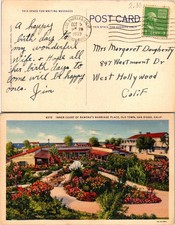 THIS SPACE FOR WRITING MESSAGES
POST CARD
A happy
birthday day to
my wonderful
wife. & Hope all
her birth days to
come will be happy
ones.
Jim
Mrs Margaret Dougherty
847 Westmont Dr
West Hollywood
Calif
INNER COURT OF RAMONA'S MARRIAGE PLACE, OLD TOWN, SAN DIEGO, CALIF.